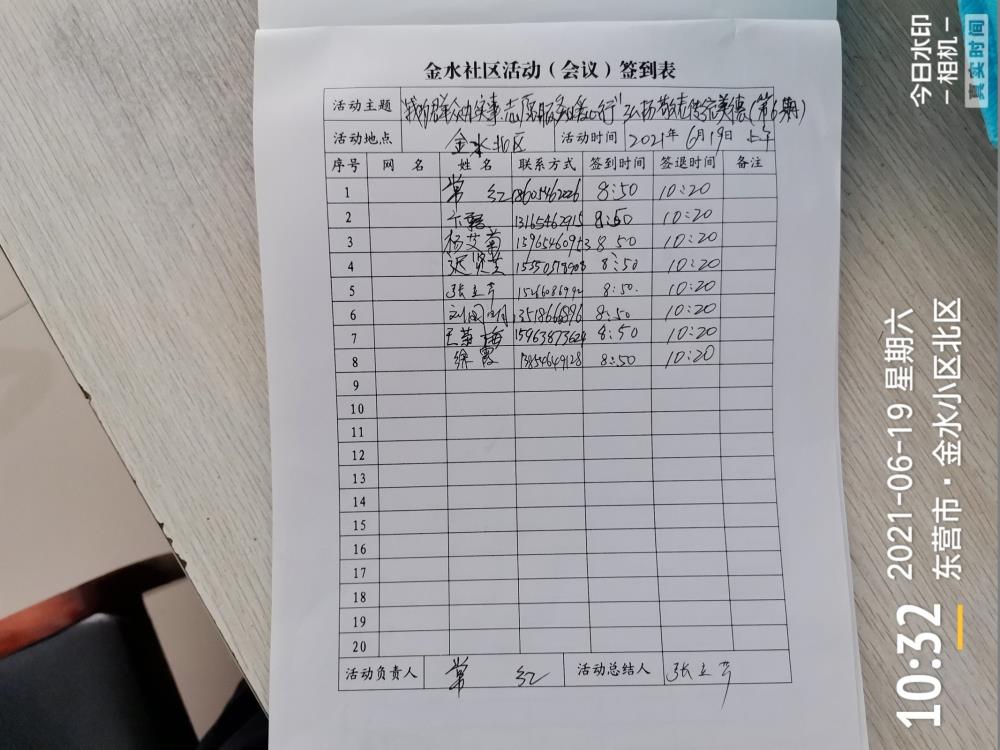 金水社区活动（会议）签到表
活动主题 "我为群众办实事,志愿服务暖心行"弘扬敬老传统美德(第6期)
活动地点 金水北区 活动时间 2021年6月19日 上午
序号 网 名 姓 名 联系方式 签到时间 签退时间 备注
1 常 红 18605462226 8:50 10:20
2 卞 13165462915 8:50 10:20
3 杨艾菊 15965460953 8:50 10:20
4 迟贤芝 8:50 10:20
5 张立芹 8:50. 10:20
6 刘国明 8:50 10:20
7 王英梅 15963873624 8:50 10:20
8 徐霞 13854649128 8:50 10:20
9
10
11
12
13
14
15
16
17
18
19
20
活动负责人 常 红 活动总结人 张立芹
今日水印
-相机-
真实时间
10:32
2021-06-19 星期六
东营市·金水小区北区